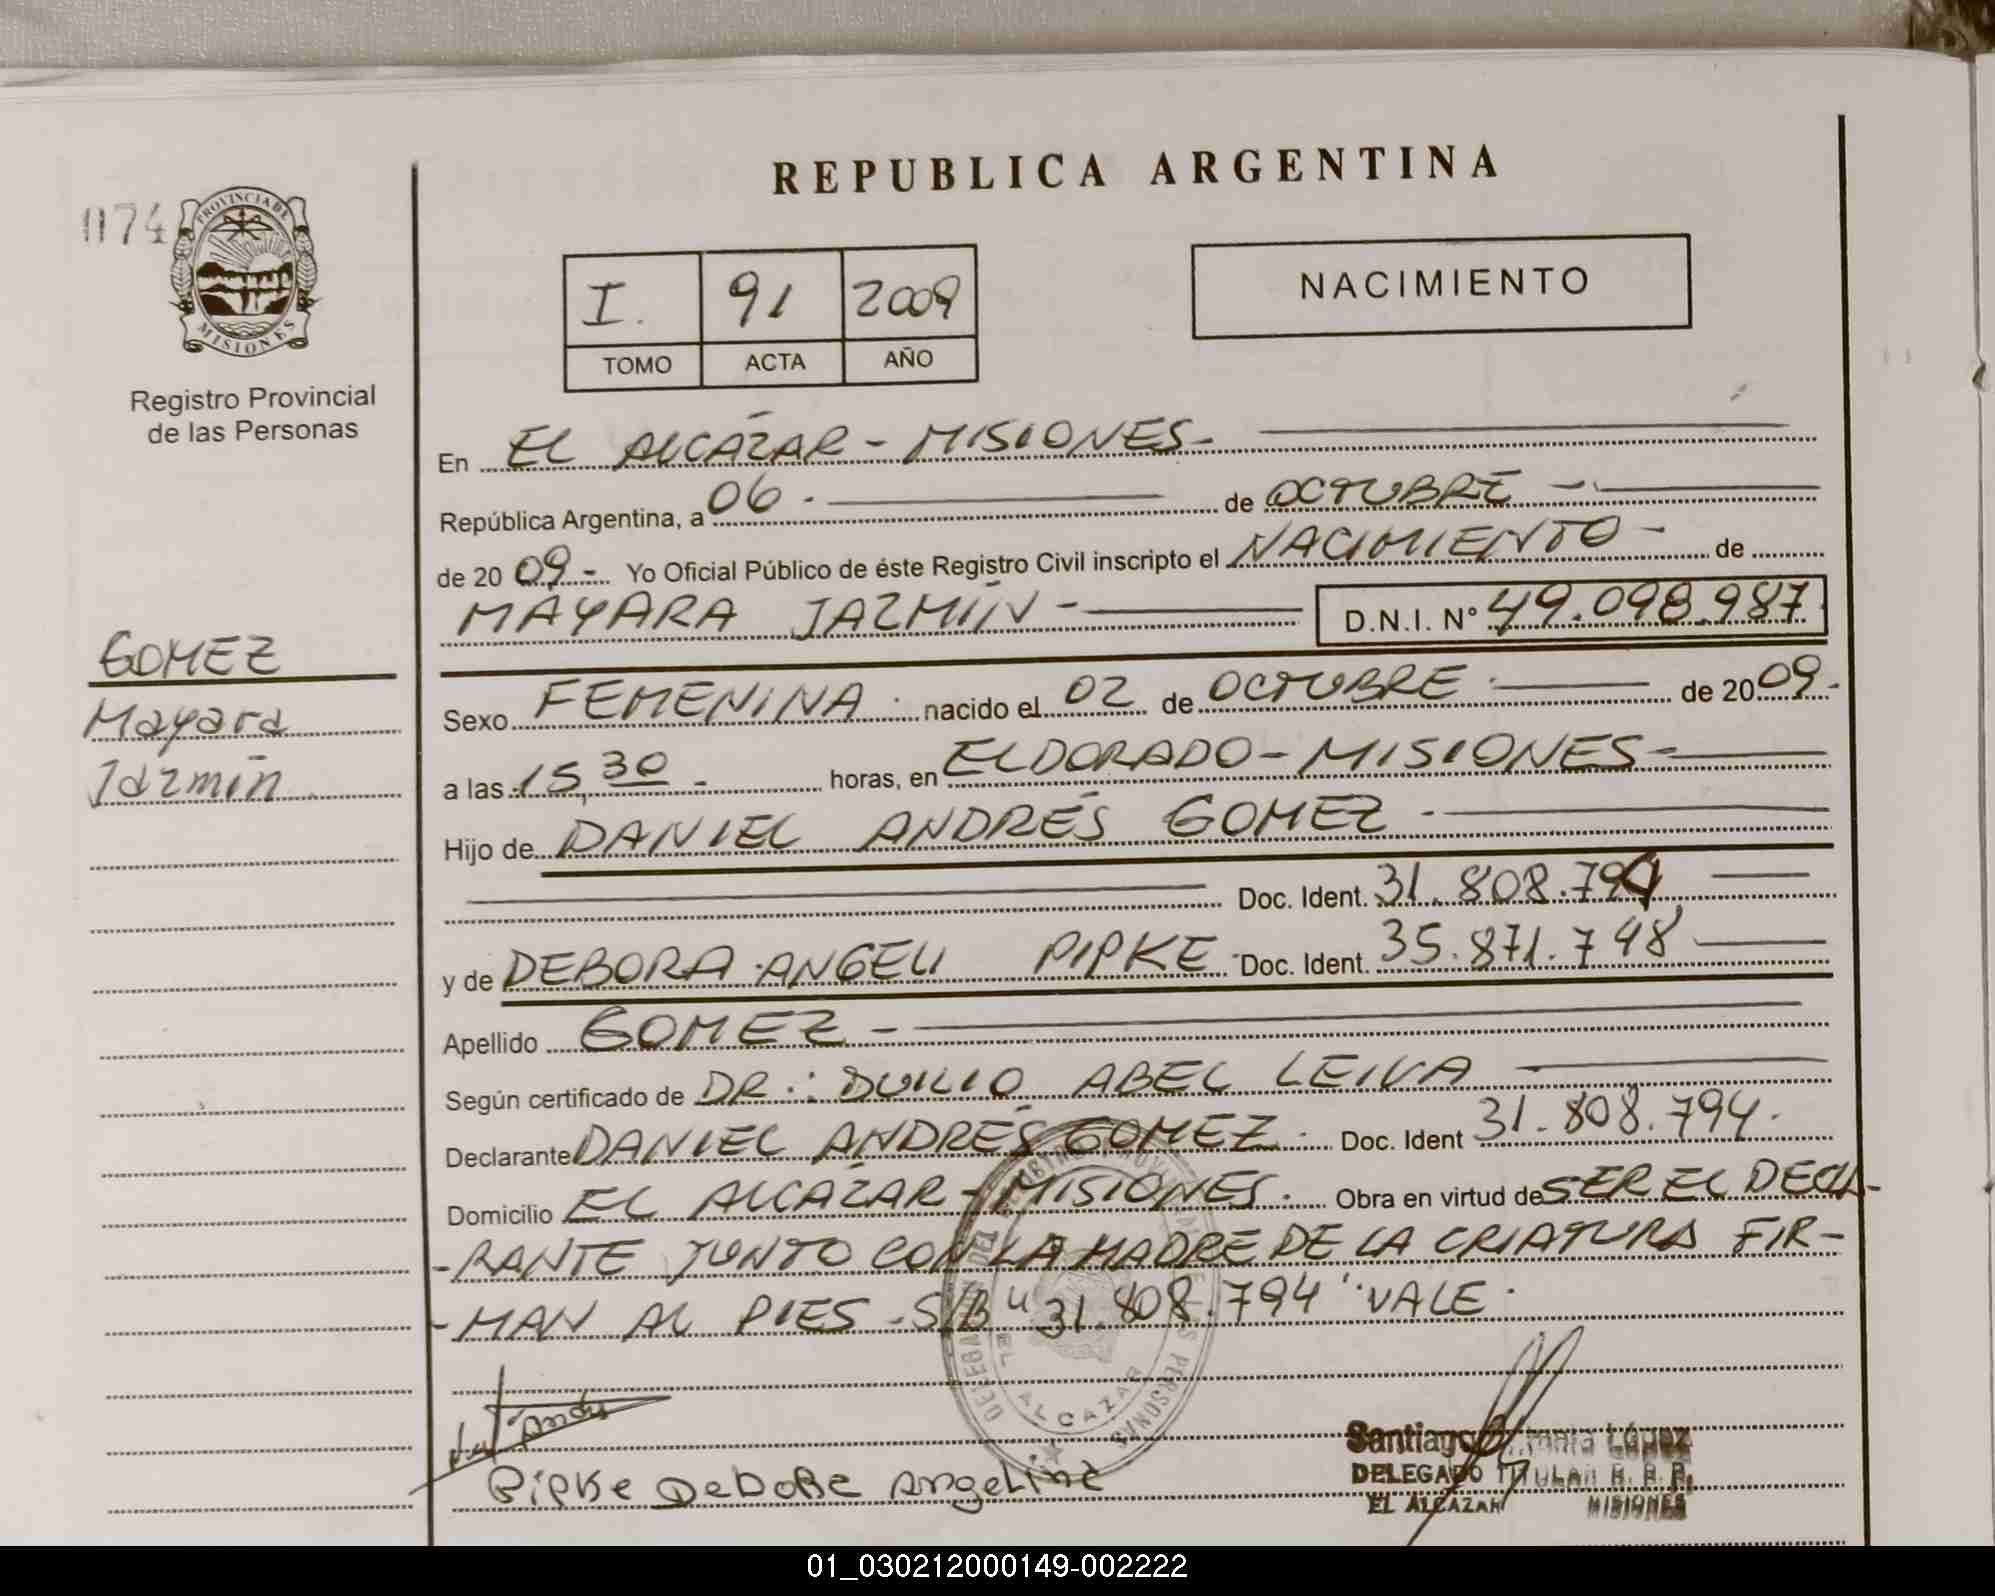 REPUBLICA ARGENTINA
074
PROVINCIA DE
MISIONES
Registro Provincial
de las Personas
I. 91 2009
TOMO ACTA AÑO
NACIMIENTO
En EL ALCÁZAR - MISIONES -
República Argentina, a 06 . de OCTUBRE -
de 20 09 - Yo Oficial Público de éste Registro Civil inscripto el NACIMIENTO - de
MAYARA JAZMÍN - D.N.I. Nº 49.098.987
GOMEZ
Mayara
Jazmín
Sexo FEMENINA . nacido el 02 de OCTUBRE . de 20 09 -
a las 15,30 - horas, en ELDORADO - MISIONES -
Hijo de DANIEL ANDRÉS GOMEZ -
Doc. Ident. 31.808.794
y de DEBORA ANGELI PIPKE Doc. Ident. 35.871.748
Apellido GOMEZ -
Según certificado de DR.: DUILIO ABEL LEIVA
Declarante DANIEL ANDRÉS GOMEZ . Doc. Ident 31.808.794.
Domicilio EL ALCÁZAR - MISIONES . Obra en virtud de SER EL DECLA-
-RANTE JUNTO CON LA MADRE DE LA CRIATURA FIR-
-MAN AL PIES - S/B "31.808.794" VALE .
EL ALCAZAR
Pipke Debora Angelina
Santiago López
DELEGADO TITULAR R. P. P.
EL ALCAZAR MISIONES
01_030212000149-002222